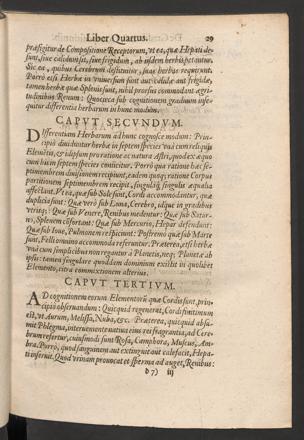 Liber Quartus. 29
præfigitur de Compositione Receptorum, vt ea, quæ Hepati de-
sunt, siue calidum sit, siue frigidum, ab ijsdem herbis petantur.
Sic ea, quibus Cerebrum destituitur, suas herbas requirunt.
Porrò etsi Herbæ in vniuersum sunt aut calidæ aut frigidæ,
tamen herbæ quæ Splenis sunt, nihil prorsus commodant ægri-
tudinibus Renum: Quocirca sub cognitionem graduum inse-
quitur differentia herbarum in hunc modum.
CAPVT SECVNDVM.
Differentiam Herbarum ad hunc cognosce modum: Prin-
cipiò diuiduntur herbæ in septem species vnà cum reliquis
Elemētis, er idipsum pro ratione ac natura astri, quod ex æquo
cum his in septem species conficitur. Porrò qua ratione hæc se-
ptimembrem diuisionem recipiunt, eadem quoq; ratione Corpus
partitionem septimembrem recipit, singulaq; singulis æqualia
affectant. Vt ea, quæ sub Sole sunt, Cordi accommodantur, quæ
duplicia sunt: Quæ verò sub Luna, Cerebro, idque in gradibus
vtrisq;: Quæ sub Venere, Renibus medentur: Quæ sub Satur-
no, Splenem cōfortant: Quæ sub Mercurio, Hepar defendunt:
Quæ sub Ioue, Pulmonem respiciunt: Postremò quæ sub Marte
sunt, Felli omnino accommoda referuntur. Præterea, etsi herbæ
vnà cum simplicibus non regantur à Planetis, neq; Planetæ ab
ipsis: tamen singulare quoddam dominium existit in quolibet
Elemento, citra commixtionem alterius.
CAPVT TERTIVM.
Ad cognitionem eorum Elementorū quæ Cordis sunt, prin-
cipiò obseruandum: Quicquid regenerat, Cordis intimum
est, vt Aurum, Melissa, Nuba, &c. Præterea, quicquid absu-
mit Phlegma, interuenente natura eius rei fragrantis, ad Cere-
brum refertur, cuiusmodi sunt Rosa, Camphora, Muscus, Am-
bra. Porrò, quod sanguinem aut extinguit aut calefacit, Hepa-
ti inseruit. Quod vrinam prouocat et sperma ad auget, Renibus:
D 7) iij